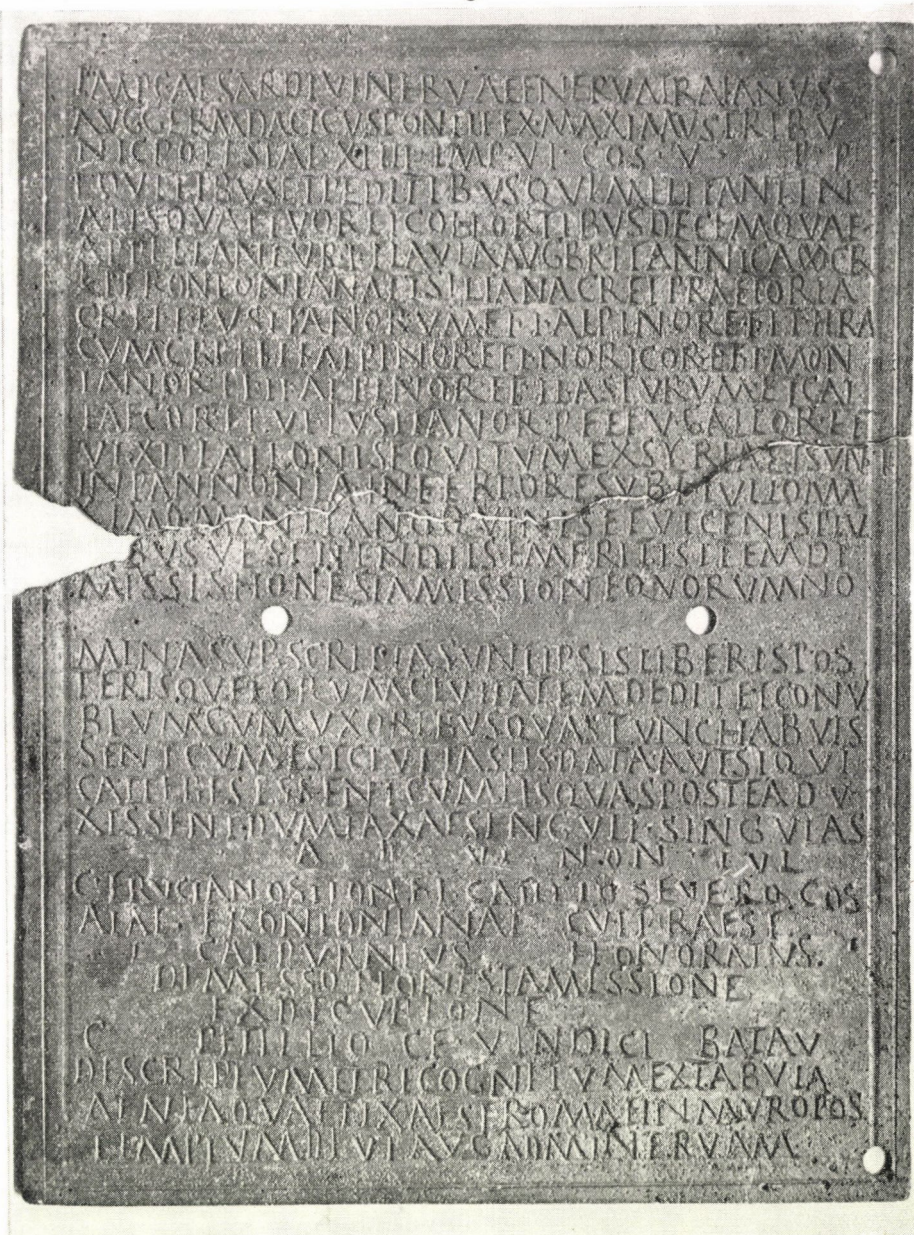 IMP CAESAR DIVI NERVAE F NERVA TRAIANVS
AVG GERM DACICVS PONTIFEX·MAXIMVS TRIBV
NIC POTESTAT·XIIII·IMP·VI·COS·V·P·P
EQVITIBVS ET PEDITIBVS QVI MILITANT IN
ALIS QVATTVOR ET COHORTIBVS DECEM QVAE
APPELLANTVR I FLAVIA AVG BRITANNICA ∞ C R
ET I FRONTONIANA ET SILIANA C R ET PRAETORIA
C R ET I LVSITANORVM ET I ALPINOR ET I THRA
CVM C R ET I ALPINOR ET I NORICOR ET I MON
TANOR ET II ALPINOR ET II ASTVRVM ET CAL
LAECOR ET VII LVSITANOR P F ET V GALLOR ET
VEXILLATIONIS EQVITVM EX SYRIA ET SVNT
IN PANNONIA INFERIORE SVB T IVLIO M
IMO MANLIANO QVINIS ET VICENIS PLV
BVSVE STIPENDIIS EMERITIS ITEM DI
MISSIS HONESTA MISSIONE QVORVM NO
MINA SVBSCRIPTA SVNT IPSIS LIBERIS POS
TERISQVE EORVM CIVITATEM DEDIT ET CONV
BIVM CVM VXORIBVS QVAS TVNC HABVIS
SENT CVM EST CIVITAS IIS DATA AVT SI QVI
CAELIBES ESSENT CVM IIS QVAS POSTEA DV
XISSENT·DVMTAXAT SINGVLI·SINGVLAS
A D VI NON IVL
C ERVCIANO SILONE L CATILIO SEVERO COS
ALAE·FRONTONIANAE CVI PRAEST
L CALPVRNIVS HONORATVS·
DIMISSO HONESTA MISSIONE
EX DECVRIONE
C PETILLIO C F VINDICI BATAV
DESCRIPTVM ET RECOGNITVM EX TABVLA
AENEA QVAE FIXA EST ROMAE IN MVRO POS
TEMPLVM DIVI AVG AD MINERVAM